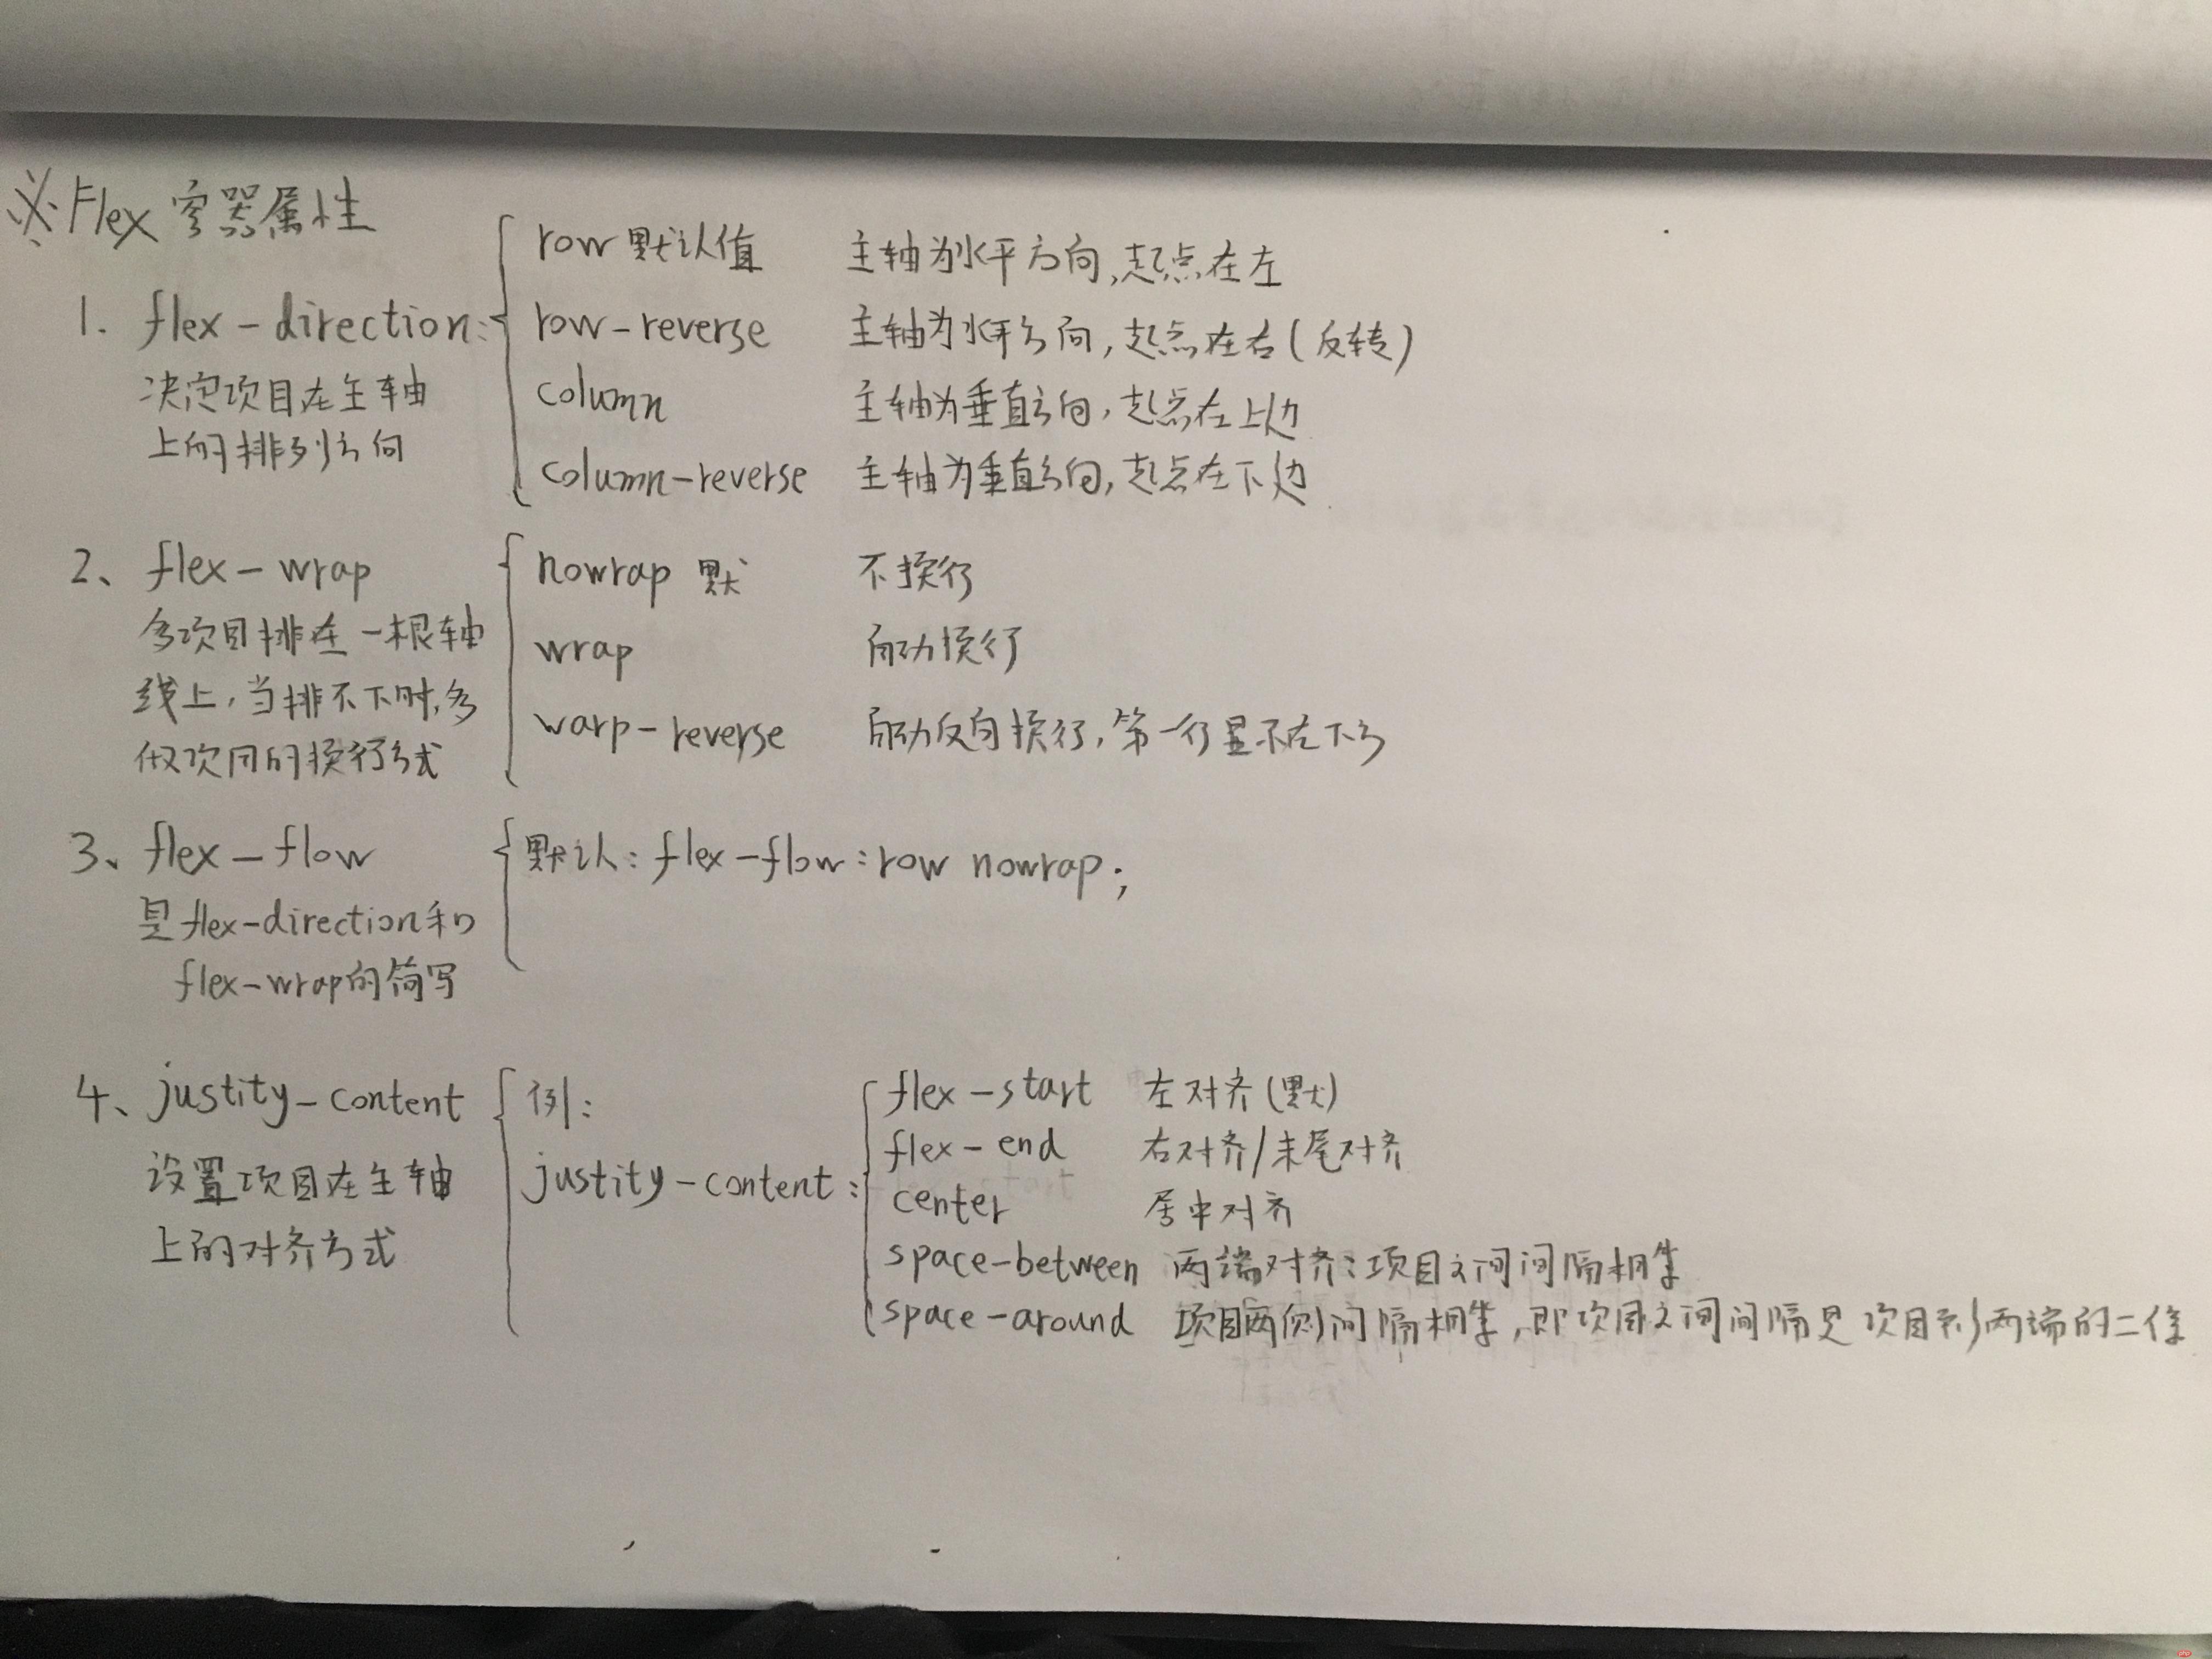 ※Flex容器属性
1. flex-direction:
决定项目在主轴
上的排列方向
row 默认值 主轴为水平方向,起点在左
row-reverse 主轴为水平方向,起点在右(反转)
column 主轴为垂直方向,起点在上边
column-reverse 主轴为垂直方向,起点在下边
2、flex-wrap
多项目排在一根轴
线上,当排不下时,多
的换行方式
nowrap 默 不换行
wrap 自动换行
warp-reverse 自动反向换行,第一行显示在下方
3、flex-flow
是flex-direction和
flex-wrap的简写
默认:flex-flow:row nowrap;
4、justity-content
设置项目在主轴
上的对齐方式
例:
justity-content:
flex-start 左对齐(默)
flex-end 右对齐/末尾对齐
center 居中对齐
space-between 两端对齐:项目之间间隔相等
space-around 项目两侧间隔相等,即项目之间间隔是项目到两端的二倍
php